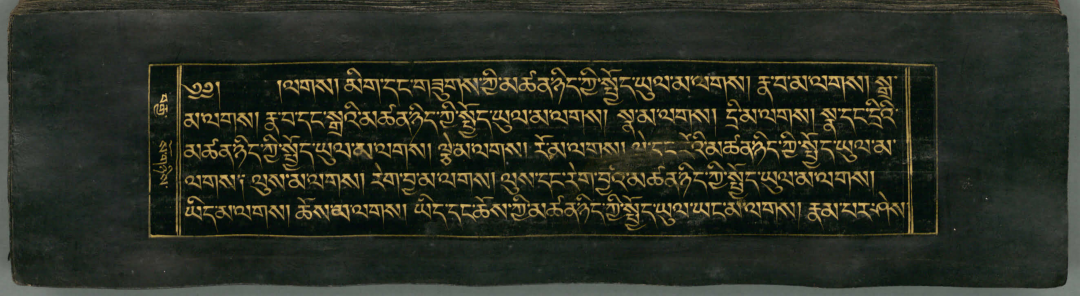 ༄༅། །ལགས། མིག་དང་གཟུགས་ཀྱི་མཚན་ཉིད་ཀྱི་སྤྱོད་ཡུལ་མ་ལགས། རྣ་བ་མ་ལགས། སྒྲ་
མ་ལགས། རྣ་བ་དང་སྒྲའི་མཚན་ཉིད་ཀྱི་སྤྱོད་ཡུལ་མ་ལགས། སྣ་མ་ལགས། དྲི་མ་ལགས། སྣ་དང་དྲིའི་
མཚན་ཉིད་ཀྱི་སྤྱོད་ཡུལ་མ་ལགས། ལྕེ་མ་ལགས། རོ་མ་ལགས། ལྕེ་དང་རོའི་མཚན་ཉིད་ཀྱི་སྤྱོད་ཡུལ་མ་
ལགས། ལུས་མ་ལགས། རེག་བྱ་མ་ལགས། ལུས་དང་རེག་བྱའི་མཚན་ཉིད་ཀྱི་སྤྱོད་ཡུལ་མ་ལགས།
ཡིད་མ་ལགས། ཆོས་མ་ལགས། ཡིད་དང་ཆོས་ཀྱི་མཚན་ཉིད་ཀྱི་སྤྱོད་ཡུལ་ཡང་མ་ལགས། རྣམ་པར་ཤེས་